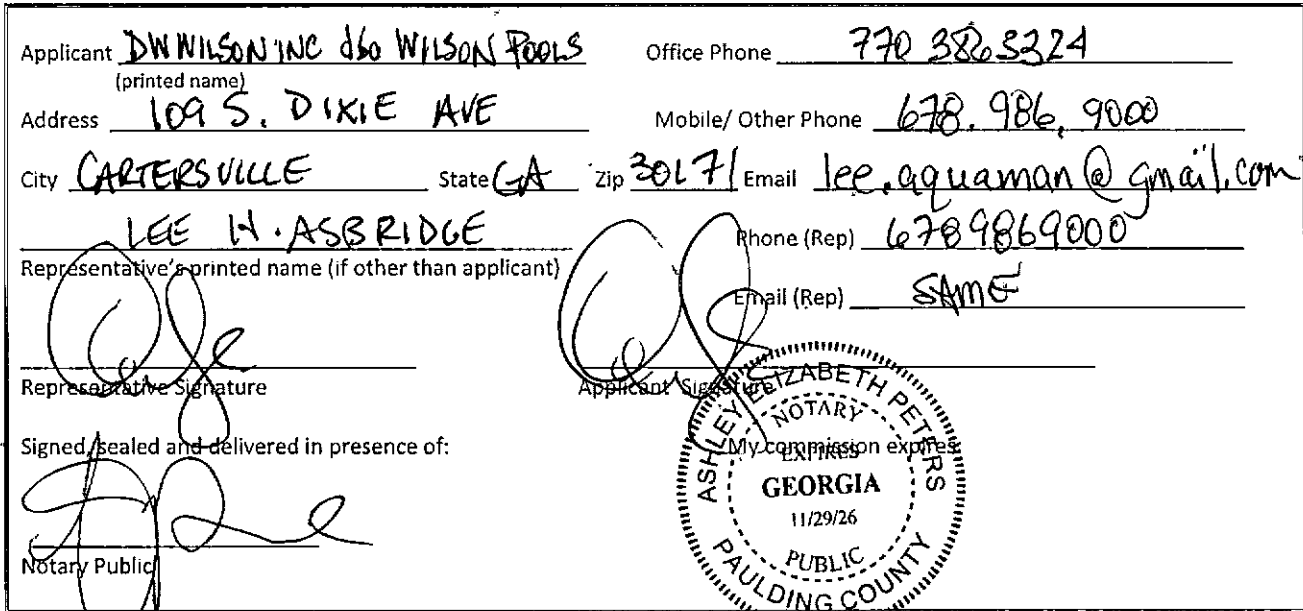 Applicant DW WILSON INC dba WILSON POOLS Office Phone 770 386 3324
(printed name)
Address 109 S. DIXIE AVE Mobile/ Other Phone 678. 986. 9000
City CARTERSVILLE State GA Zip 30171 Email lee.aquaman@gmail.com
LEE H. ASBRIDGE Phone (Rep) 6789869000
Representative's printed name (if other than applicant)
Email (Rep) SAME
Representative Signature Applicant Signature
Signed, sealed and delivered in presence of: My commission expires
ASHLEY ELIZABETH PETERS
NOTARY
EXPIRES
GEORGIA
11/29/26
PUBLIC
PAULDING COUNTY
Notary Public